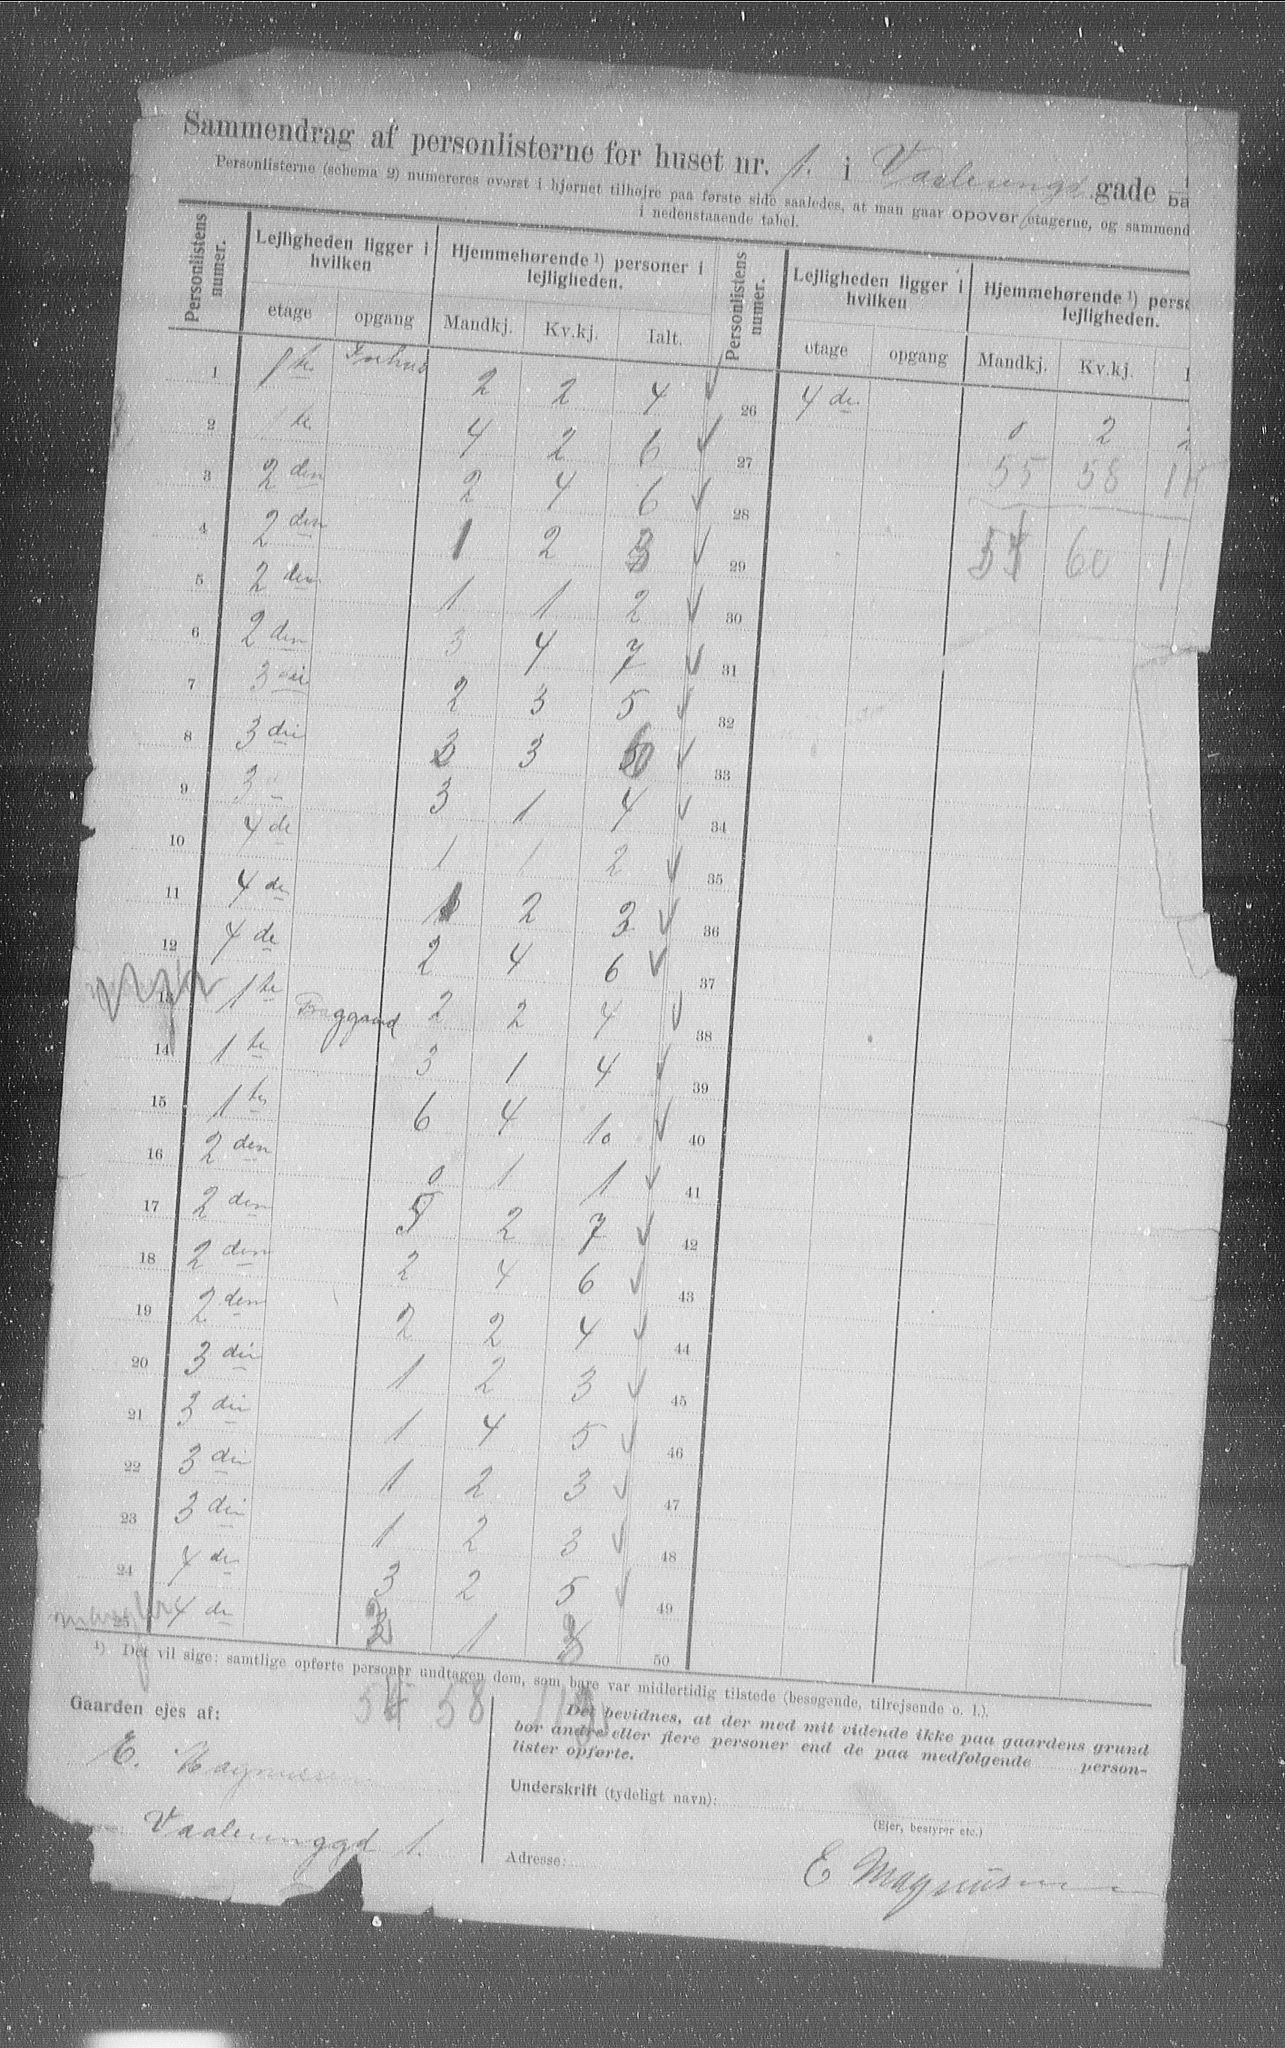 Sammendrag af personlisterne for huset nr. 1. i Vaalerengd. gade
Personlisterne (schema 2) numereres øverst i hjørnet tilhøjre paa første side saaledes, at man gaar opover etagerne, og sammend
i nedenstaaende tabel.
Personlistens numer. Lejligheden ligger i hvilken Hjemmehørende ¹) personer i lejligheden. Personlistens numer. Lejligheden ligger i hvilken Hjemmehørende ¹) perso lejligheden.
etage opgang Mandkj. Kv.kj. Ialt. etage opgang Mandkj. Kv.kj. I
1 1te Forhus 2 2 4 ✓ 26 4de 0 2 2
2 1te 4 2 6 ✓ 27 55 58 11
3 2den 2 4 6 ✓ 28
4 2den 1 2 3 ✓ 29 60 1
5 2den 1 1 2 ✓ 30
6 2den 3 4 7 ✓ 31
7 3die 2 3 5 ✓ 32
8 3die 3 3 6 ✓ 33
9 3 3 1 4 ✓ 34
10 4de 1 1 2 ✓ 35
11 4de 1 2 3 ✓ 36
12 4de 2 4 6 ✓ 37
13 1te 2 2 4 ✓ 38
14 1te 3 1 4 ✓ 39
15 1te 6 4 10 ✓ 40
16 2den 0 1 1 ✓ 41
17 2den 5 2 7 ✓ 42
18 2den 2 4 6 ✓ 43
19 2den 2 2 4 ✓ 44
20 3die 1 2 3 ✓ 45
21 3die 1 4 5 ✓ 46
22 3die 1 2 3 ✓ 47
23 3die 1 2 3 ✓ 48
24 4de 3 2 5 ✓ 49
25 4de 1 50
¹) Det vil sige: samtlige opførte personer undtagen dem, som bare var midlertidig tilstede (besøgende, tilrejsende o. l.).
58
Gaarden ejes af:
E. Magnussen
Vaalerenggd 1.
Det bevidnes, at der med mit vidende ikke paa gaardens grund
bor andre eller flere personer end de paa medfølgende person-
lister opførte.
Underskrift (tydeligt navn):
(Ejer, bestyrer etc.)
E Magnussen
Adresse: